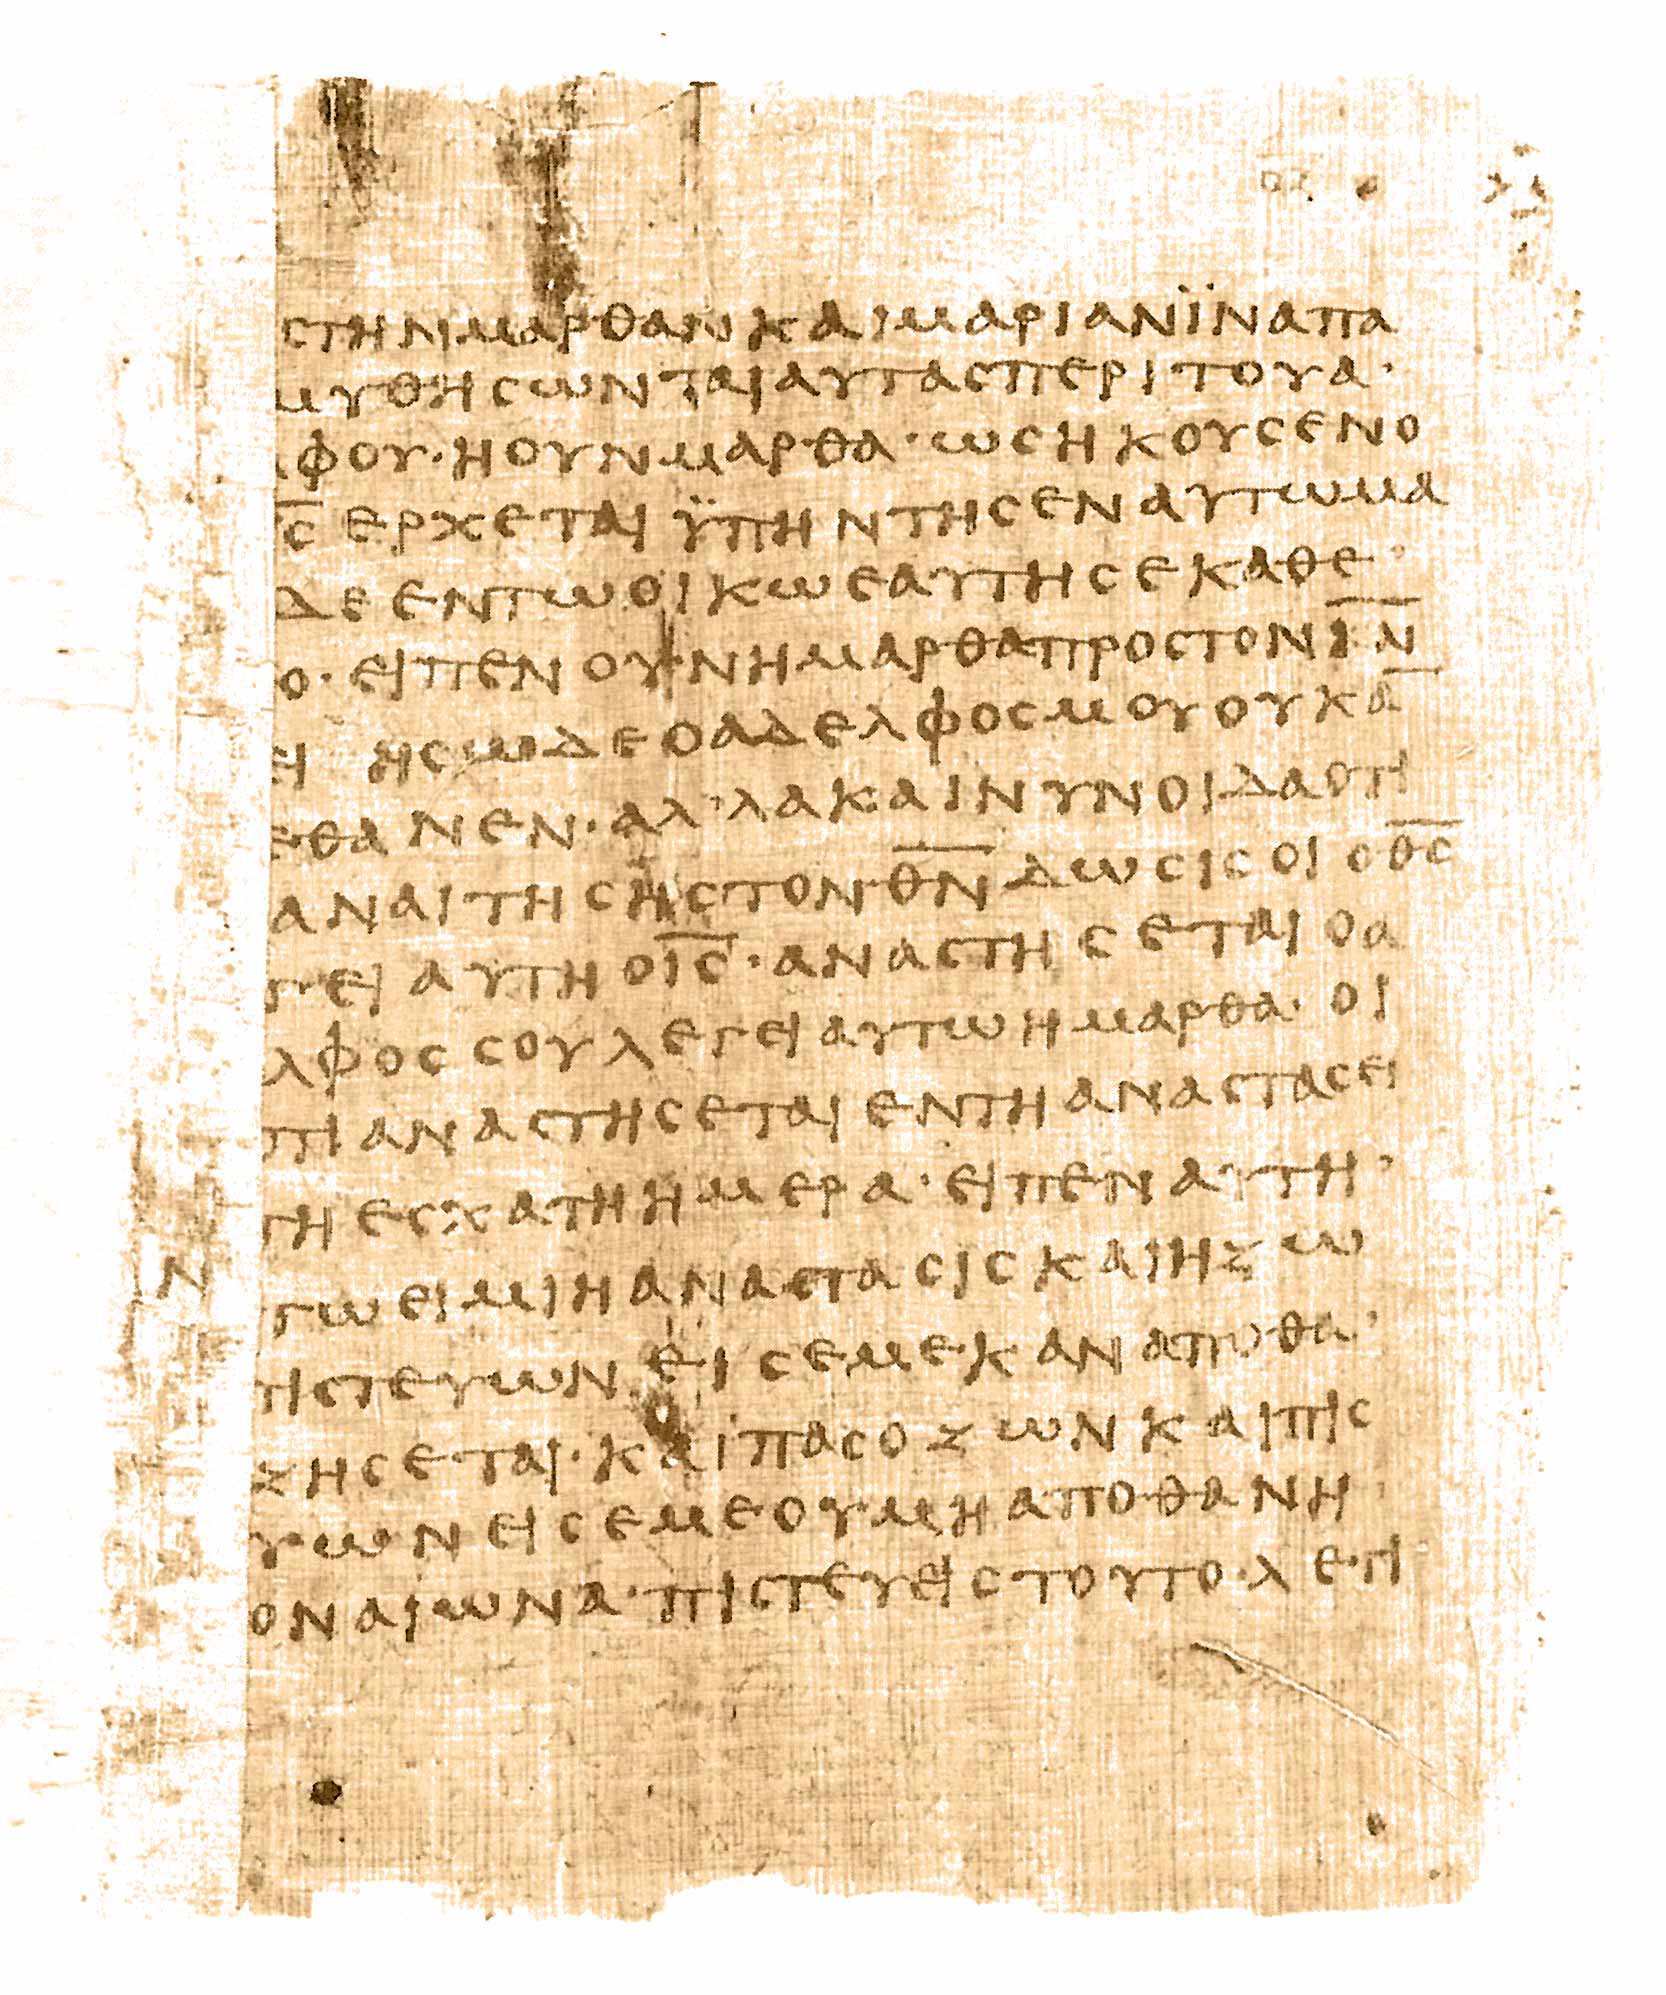 ϲτηνμαρθανκαιμαριανϊναπα
μυθηϲωνταιαυταϲπεριτουα·
φου·ηουνμαρθα·ωϲηκουϲενο
ι̅ϲ̅ερχεταιϋπηντηϲεναυτωμα
δεεντωοικωεαυτηϲεκαθε·
ο·ειπενουνημαρθαπροϲτονι̅ν̅
ει ηϲωδεοαδελφοϲμουουκα̅
εθανεν·αλ᾽λακαινυνοιδαοτι
αναιτηϲηϲτονθ̅ν̅δωϲιϲοιοθ̅ϲ̅
γειαυτηοι̅ϲ̅·αναϲτηϲεταιοα
λφοϲϲουλεγειαυτωημαρθα·οι
τιαναϲτηϲεταιεντηαναϲταϲει
τηεϲχατηημερα·ειπεναυτη·
γωειμιηαναϲταϲιϲκαιηζω
ν
πιϲτευωνειϲεμεκαναποθα·
ζηϲεται·καιπαϲοζωνκαιπιϲ
υωνειϲεμεουμηαποθανη·
οναιωνα·πιϲτευειϲτουτο·λεγι